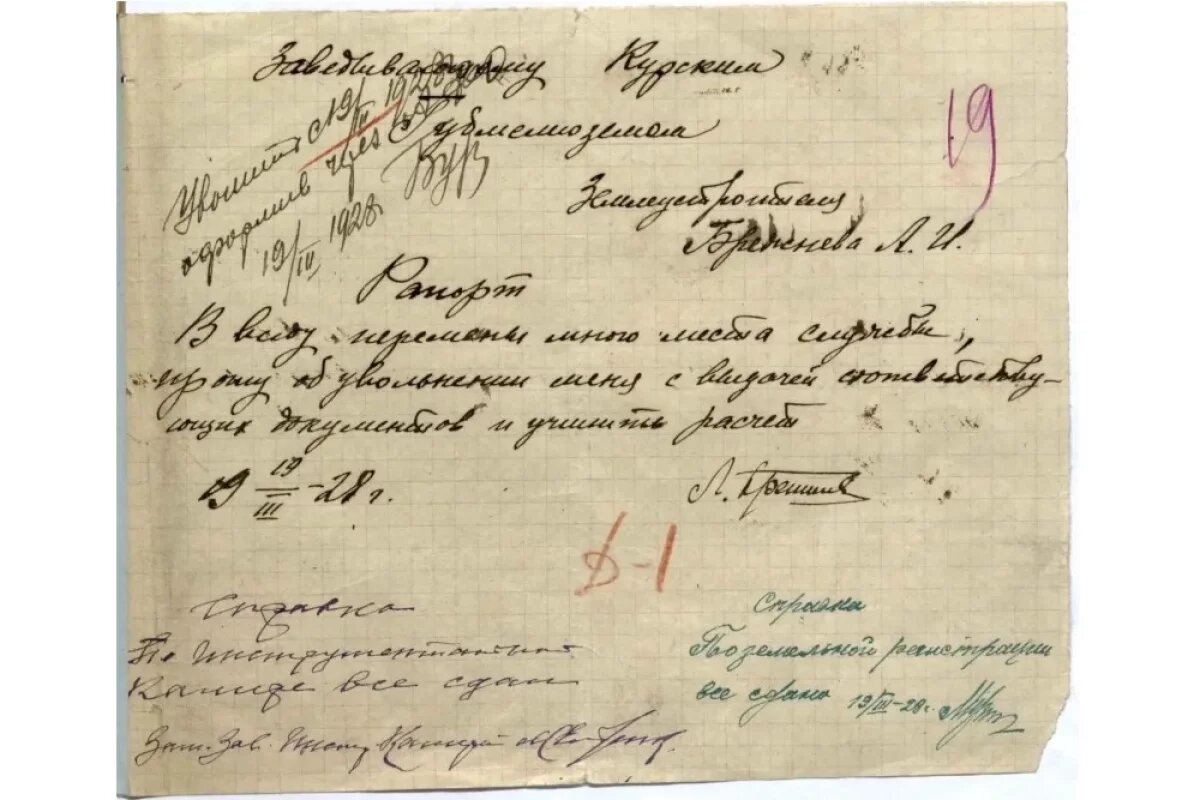 Заведывающему Курским
Губмелиоземом
19
Землеустроителя
Брежнева Л. И.
Уволить с 19/III 1928
оформив через
19/III 1928
Рапорт
В виду перемены мною места службы,
прошу об увольнении меня с выдачей соответству-
ющих документов и учинить расчет
19 19/III - 28 г.
Л. Брежнев
Д-1
Справка
По инструментальной
камере все сдал
Зам. Зав. Инстр. Камерой
Справка
По земельной регистрации
все сдано 19/III-28 г.